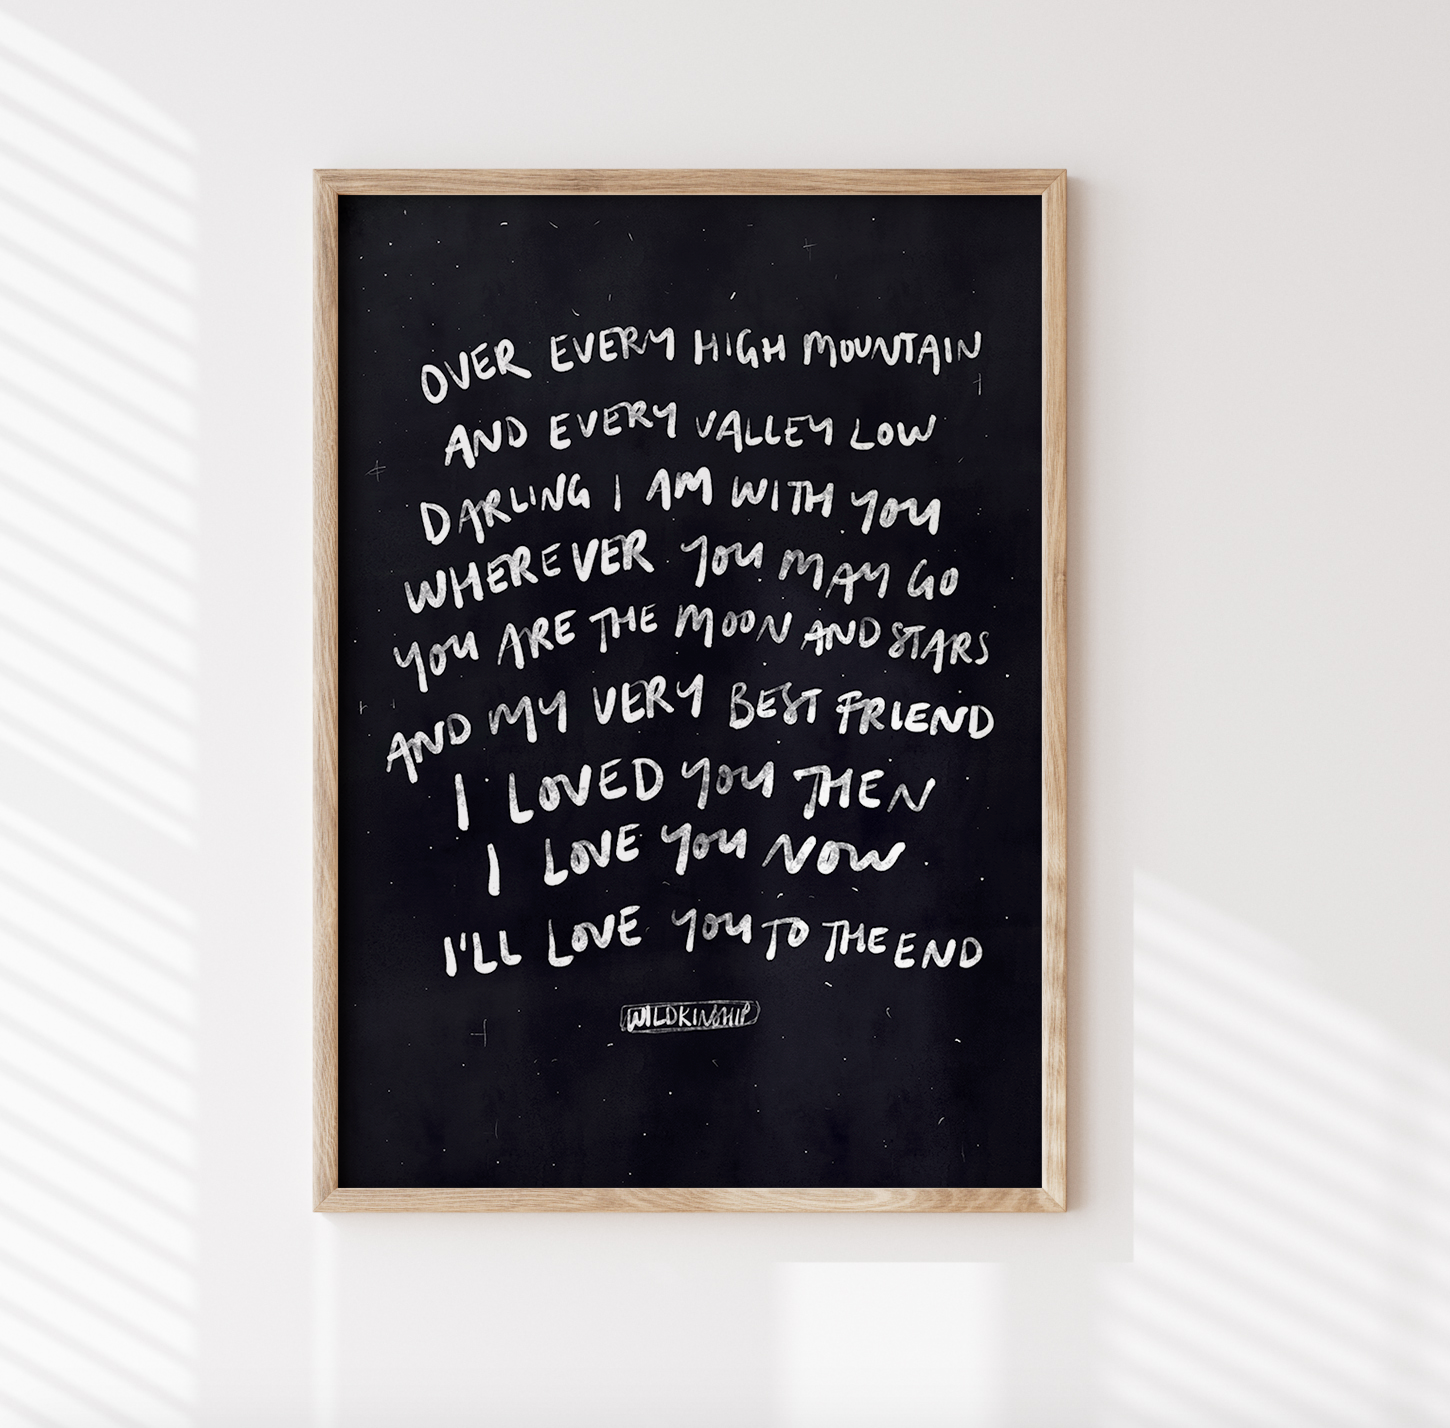 OVER EVERY HIGH MOUNTAIN
AND EVERY VALLEY LOW
DARLING I AM WITH YOU
WHEREVER YOU MAY GO
YOU ARE THE MOON AND STARS
AND MY VERY BEST FRIEND
I LOVED YOU THEN
I LOVE YOU NOW
I'LL LOVE YOU TO THE END
WILDKINSHIP